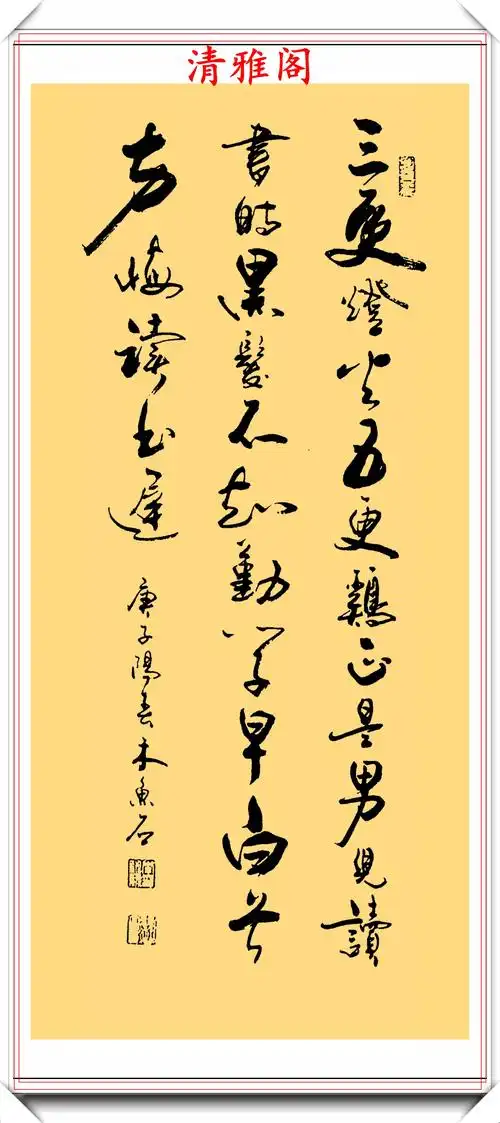 清雅阁
三更燈火五更鷄正是男兒讀
書時黑髮不知勤學早白首
方悔讀书遲
庚子陽春木魚石